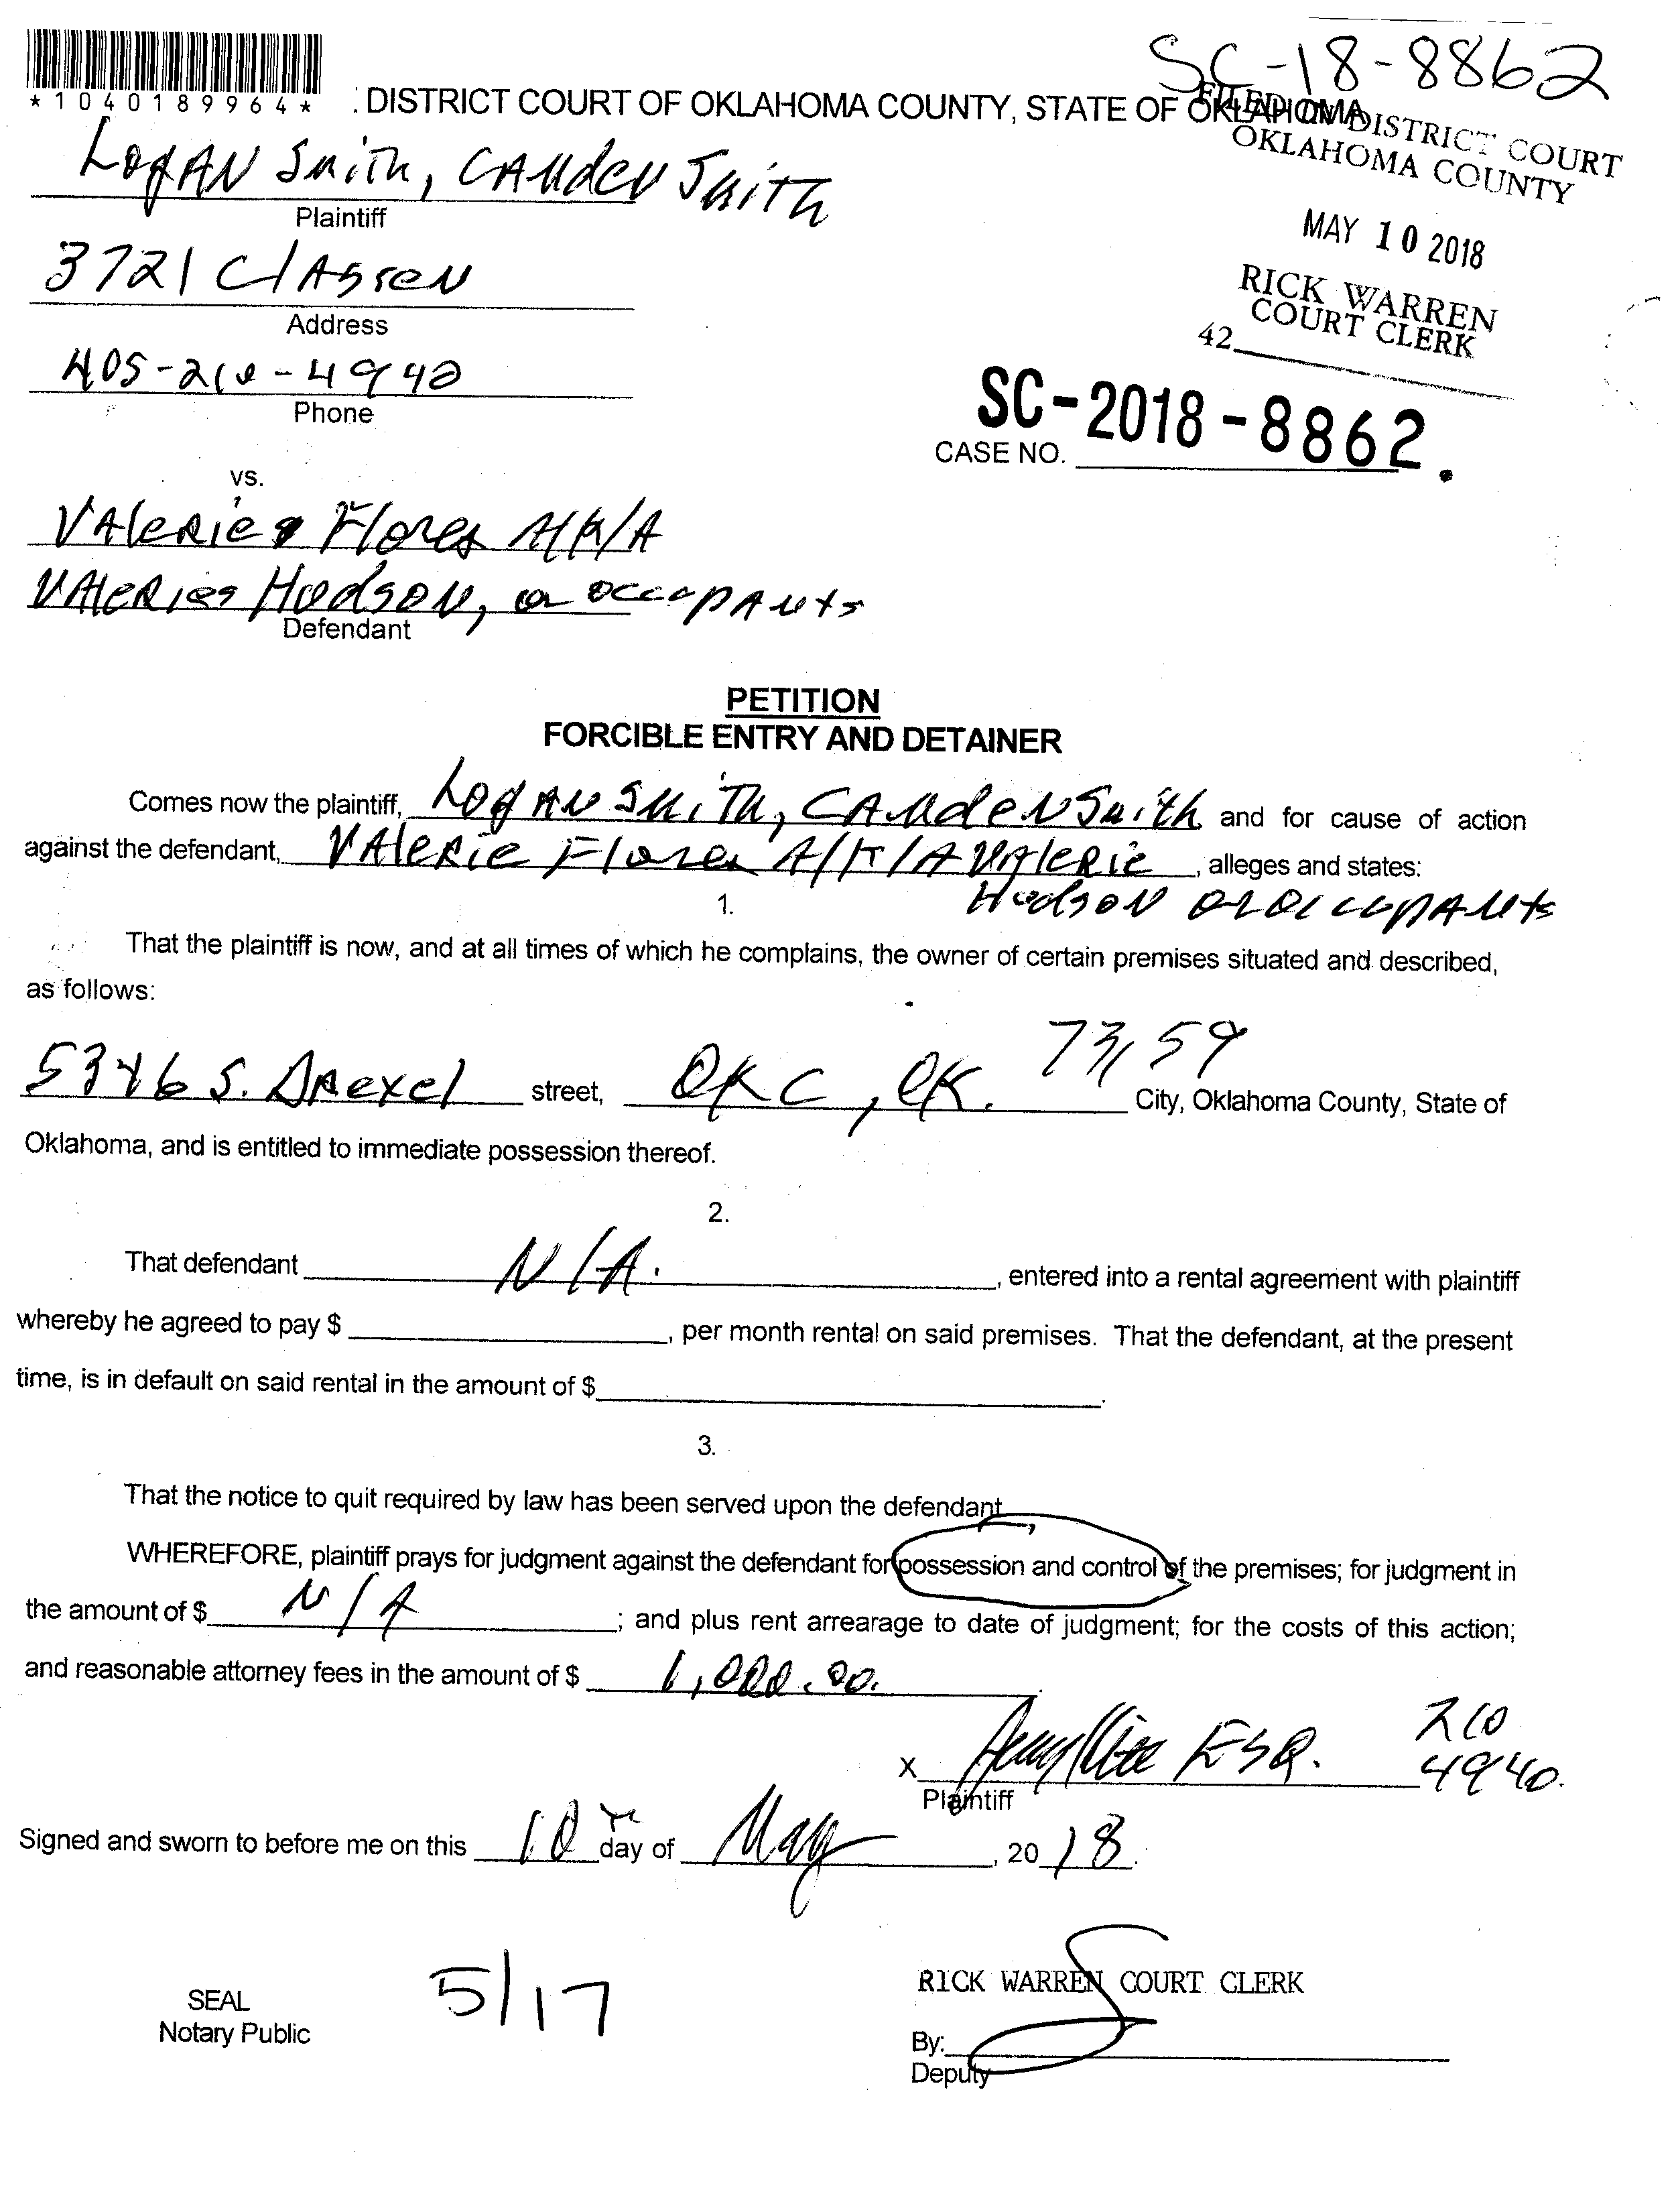 SC-18-8862
*1040189964*
DISTRICT COURT OF OKLAHOMA COUNTY, STATE OF OKLAHOMA
FILED IN DISTRICT COURT
OKLAHOMA COUNTY
MAY 10 2018
RICK WARREN
COURT CLERK
42
Logan Smith, Camden Smith
Plaintiff
3721 Classen
Address
405-210-4940
Phone
SC-2018-8862.
CASE NO.
vs.
Valerie Flores A/K/A
Valerie Hodson, or occupants
Defendant
PETITION
FORCIBLE ENTRY AND DETAINER
Comes now the plaintiff, Logan Smith, Camden Smith and for cause of action
against the defendant, Valerie Flores A/K/A Valerie, alleges and states:
Hudson or occupants
1.
That the plaintiff is now, and at all times of which he complains, the owner of certain premises situated and described,
as follows:
5346 S. Drexel street, OKC, OK. 73159 City, Oklahoma County, State of
Oklahoma, and is entitled to immediate possession thereof.
2.
That defendant N/A. , entered into a rental agreement with plaintiff
whereby he agreed to pay $ , per month rental on said premises. That the defendant, at the present
time, is in default on said rental in the amount of $ .
3.
That the notice to quit required by law has been served upon the defendant
WHEREFORE, plaintiff prays for judgment against the defendant for possession and control of the premises; for judgment in
the amount of $ N/A ; and plus rent arrearage to date of judgment; for the costs of this action;
and reasonable attorney fees in the amount of $ 1,000.00.
X ESQ. 210
4940.
Plaintiff
Signed and sworn to before me on this 10th day of May, 2018.
SEAL
Notary Public
5/17
RICK WARREN COURT CLERK
By:
Deputy